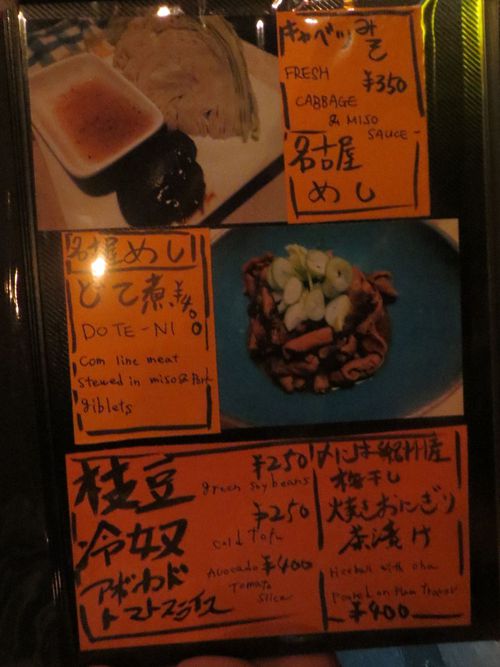 キャベツみそ
FRESH
¥350
CABBAGE
& MISO
SAUCE
名古屋
めし
名古屋めし
どて煮 ¥400
DOTE-NI
Com line meat
stewed in miso & Pork
giblets
枝豆 ¥250
green soybeans
冷奴 ¥250
Cold Tofu
アボカド
トマトスライス
Avocado ¥400
Tomato
Slice
梅干し
焼きおにぎり
茶漬け
riceball with ocha
Poured on
¥400